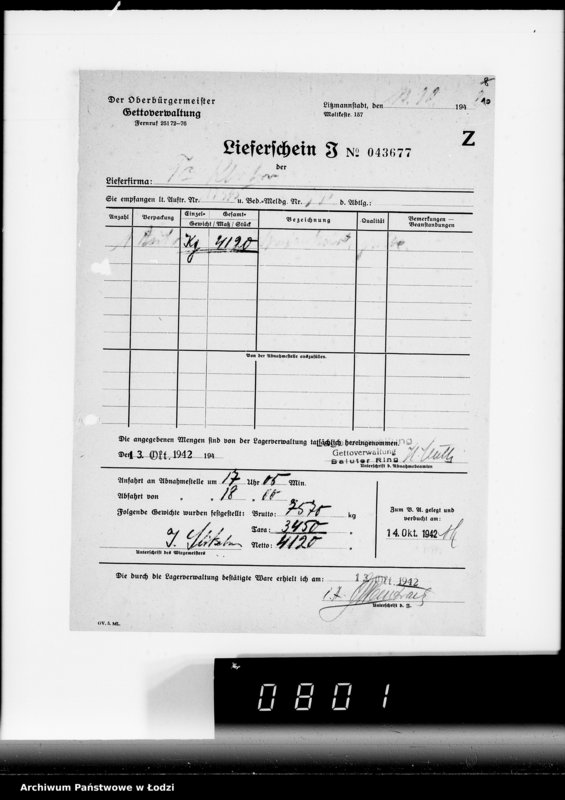 Der Oberbürgermeister
Gettoverwaltung
Fernruf 25172-76
Litzmannstadt, den 194
Moltkestr. 157
Z
Lieferschein J № 043677
der
Lieferfirma:
Sie empfangen lt. Auftr. Nr. u. Bed.-Meldg. Nr. d. Abtlg.:
Anzahl Verpackung Einzel- Gesamt- Bezeichnung Qualität Bemerkungen —
Gewicht / Maß / Stück Beanstandungen
Kg 4120
Von der Abnahmestelle auszufüllen.
Die angegebenen Mengen sind von der Lagerverwaltung tatsächlich hereingenommen.
Den 13. Okt. 1942 194
Gettoverwaltung
Baluter Ring
Unterschrift d. Abnahmebeamten
Anfahrt an Abnahmestelle um 17 Uhr 05 Min.
Abfahrt von " " 18 " 00 "
Folgende Gewichte wurden festgestellt: Brutto: 7570 kg
Tara: 3450 "
Netto: 4120 "
Unterschrift des Wiegemeisters
Zum B. A. gelegt und
verbucht am:
14. Okt. 1942
Die durch die Lagerverwaltung bestätigte Ware erhielt ich am: 13. Okt. 1942
Unterschrift d. F.
GV. 5. ML.
0801
Archiwum Państwowe w Łodzi